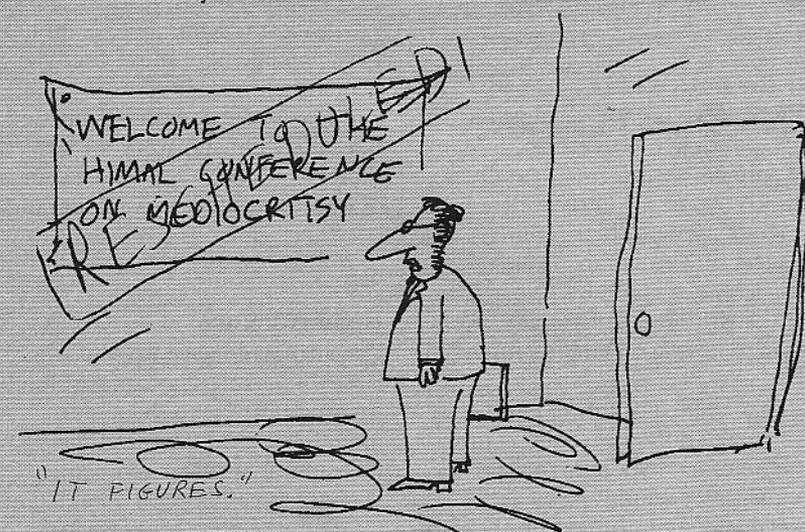 WELCOME TO THE
HIMAL CONFERENCE
ON MEDIOCRITSY
RESCHEDULED!
"IT FIGURES."